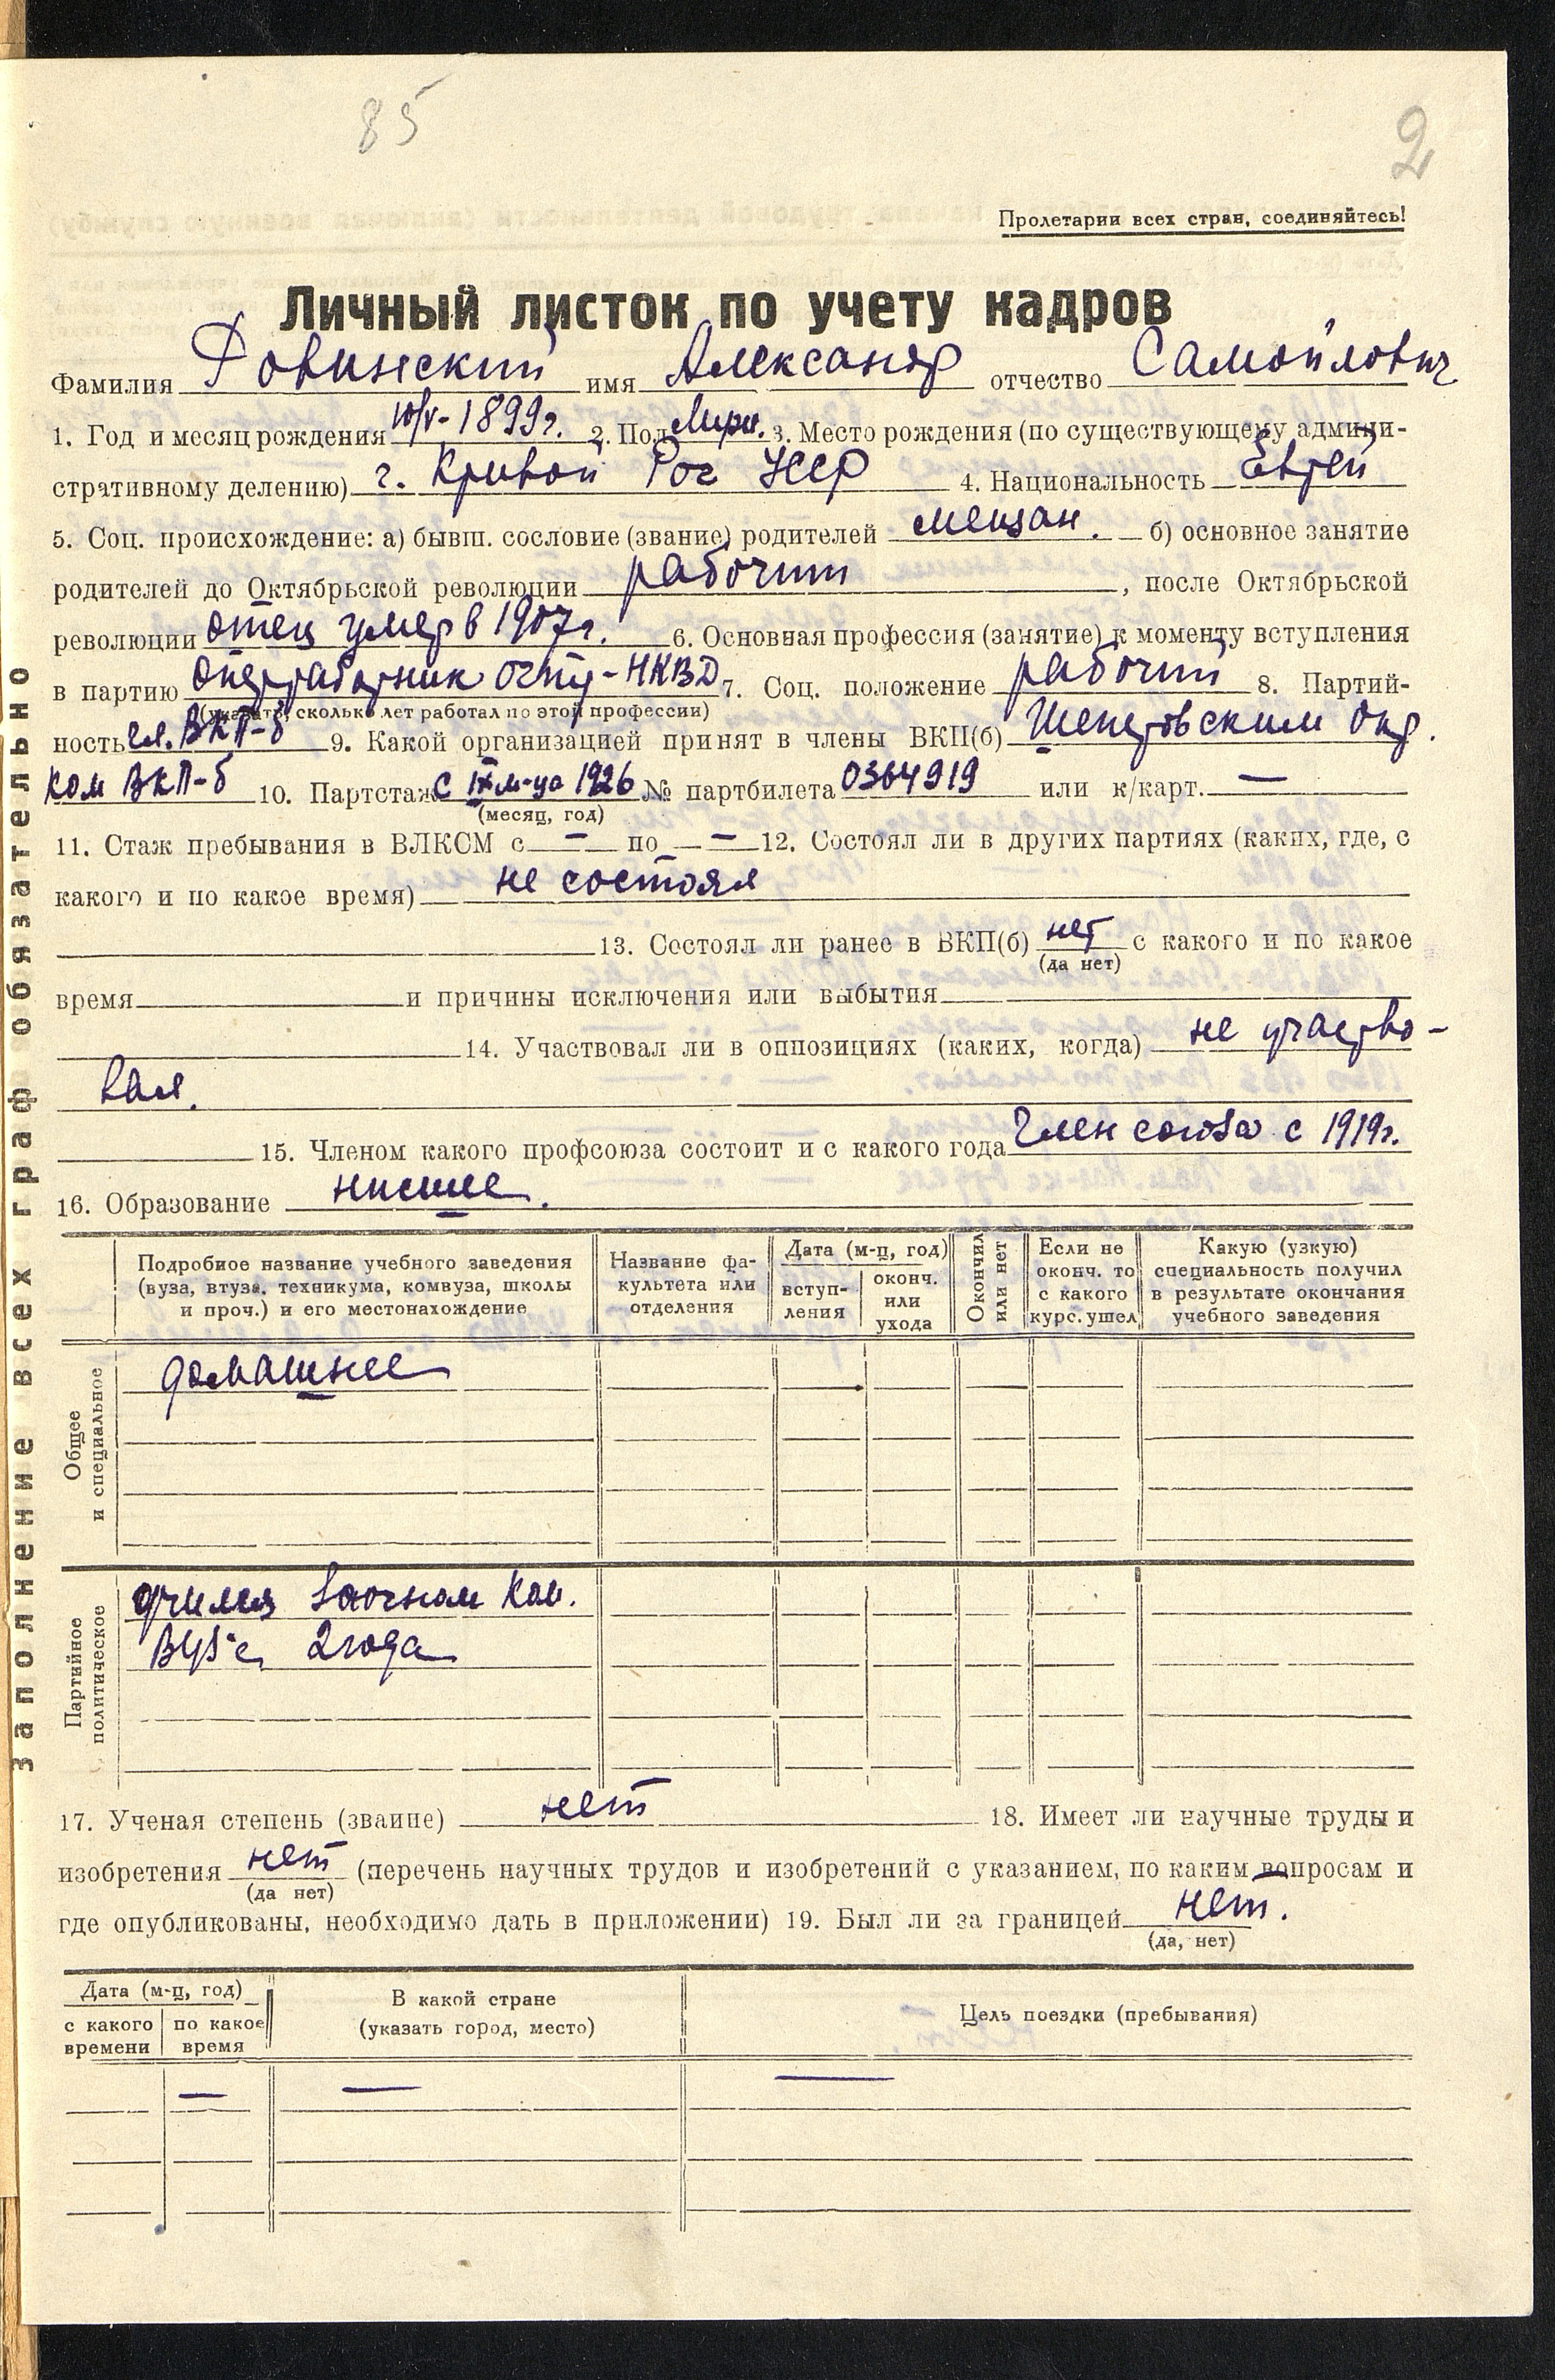 85
2
Пролетарии всех стран, соединяйтесь!
Личный листок по учету кадров
Фамилия Ровинский имя Александр отчество Самойлович
1. Год и месяц рождения 10/V-1899г. 2. Пол 3. Место рождения (по существующему админи-
стративному делению) г. Кривой Рог УССР 4. Национальность Еврей
5. Соц. происхождение: а) бывш. сословие (звание) родителей мещан. б) основное занятие
родителей до Октябрьской революции рабочий, после Октябрьской
революции отец умер в 1907г. 6. Основная профессия (занятие) к моменту вступления
в партию оперработник ОГПУ-НКВД 7. Соц. положение рабочий 8. Партий-
(указать, сколько лет работал по этой профессии)
ность чл. ВКП-б 9. Какой организацией принят в члены ВКП(б) Шепетовским Окр.
ком ВКП-б 10. Партстаж с IX м-ца 1926 № партбилета 0364919 или к/карт. —
(месяц, год)
11. Стаж пребывания в ВЛКСМ с — по — 12. Состоял ли в других партиях (каких, где, с
какого и по какое время) не состоял
13. Состоял ли ранее в ВКП(б) нет с какого и по какое
(да нет)
время и причины исключения или выбытия
14. Участвовал ли в оппозициях (каких, когда) не участво-
вал.
15. Членом какого профсоюза состоит и с какого года Член союза с 1919г.
16. Образование низшее.
Подробное название учебного заведения (вуза, втуза, техникума, комвуза, школы и проч.) и его местонахождение
Название факультета или отделения
Дата (м-ц, год)
вступ-ления
оконч. или ухода
Окончил или нет
Если не оконч. то с какого курс. ушел
Какую (узкую) специальность получил в результате окончания учебного заведения
Общее и специальное
домашнее
Партийное политическое
учился заочном Ком.
ВУЗ'е 2 года
17. Ученая степень (звание) нет 18. Имеет ли научные труды и
изобретения нет (перечень научных трудов и изобретений с указанием, по каким вопросам и
(да нет)
где опубликованы, необходимо дать в приложении) 19. Был ли за границей нет.
(да, нет)
Дата (м-ц, год)
с какого времени
по какое время
В какой стране (указать город, место)
Цель поездки (пребывания)
— — —
заполнение всех граф обязательно